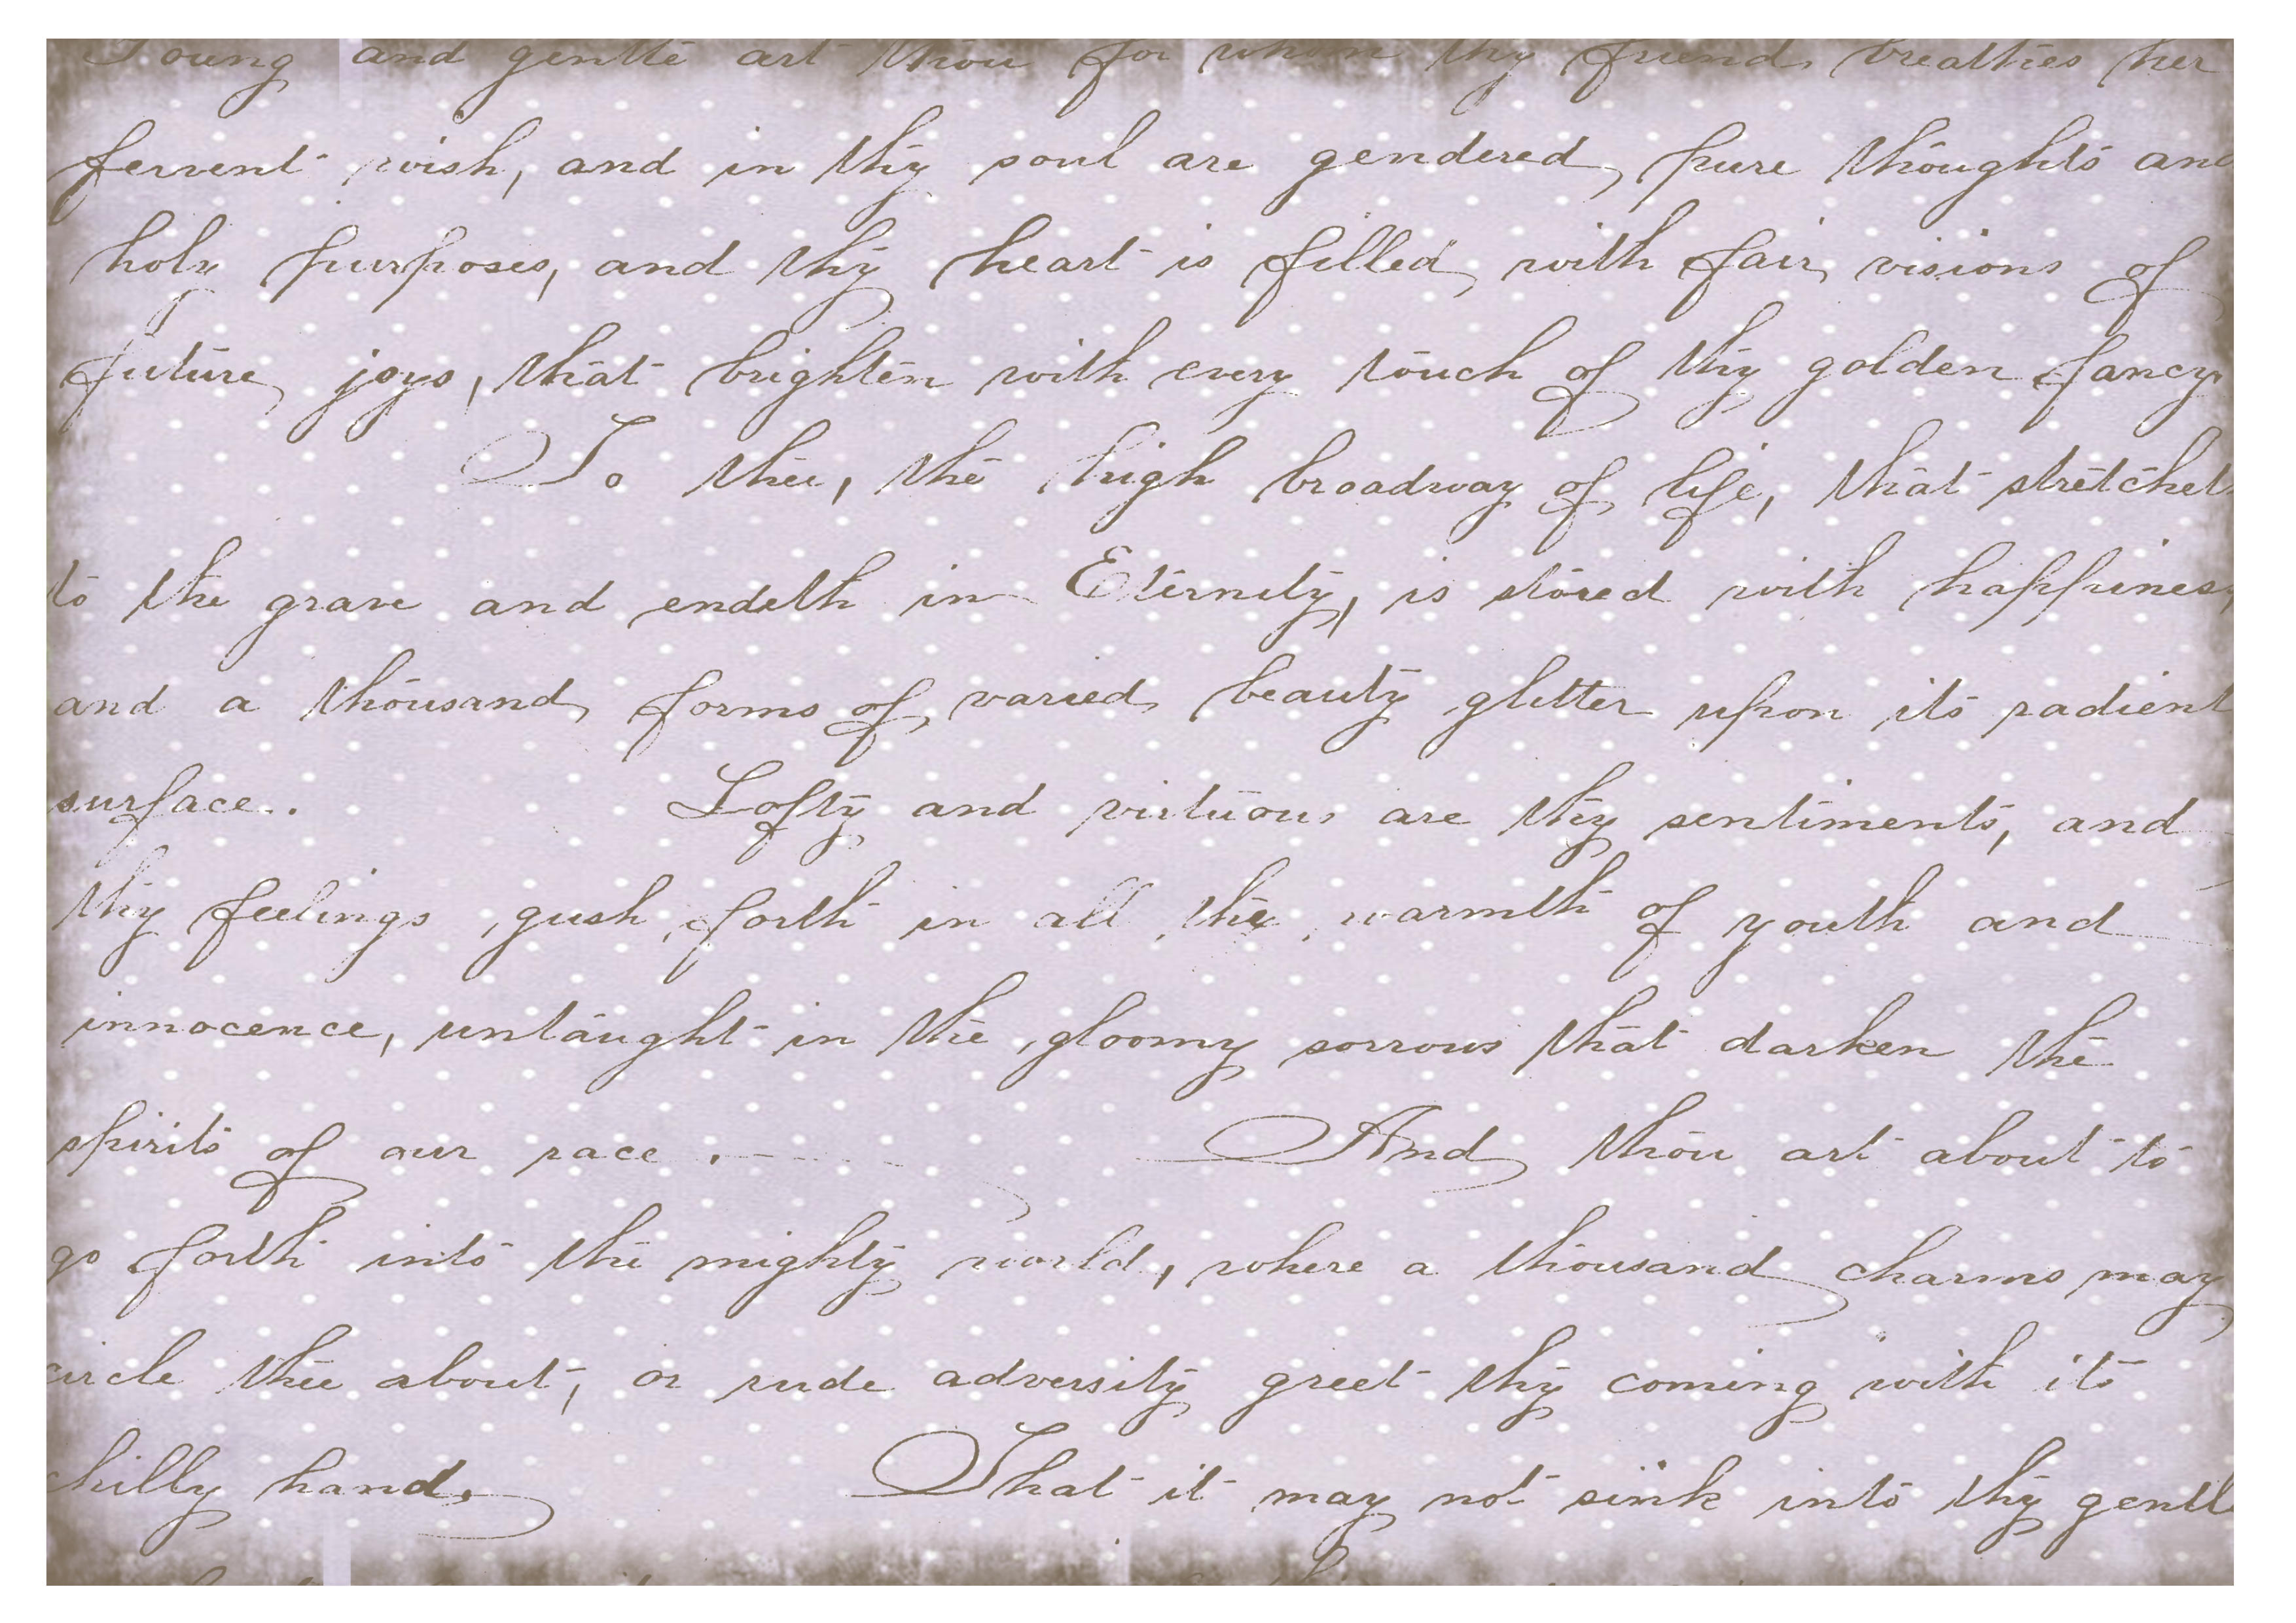 Young and gentle art thou for whom thy friend breathes her
fervent wish, and in thy soul are gendered pure thoughts and
holy purposes, and thy heart is filled with fair visions of
future joys, that brighten with every touch of thy golden fancy
To thee, the high broadway of life, that stretchet
to the grave and endeth in Eternity, is stored with happiness
and a thousand forms of varied beauty glitter upon its radient
surface.
Lofty and virtuous are thy sentiments, and
thy feelings gush forth in all the warmth of youth and
innocence, untaught in the gloomy sorrows that darken the
spirits of our race.
And thou art about to
go forth into the mighty world, where a thousand charms may
circle thee about, or rude adversity greet thy coming with its
chilly hand.
That it may not sink into thy gentle